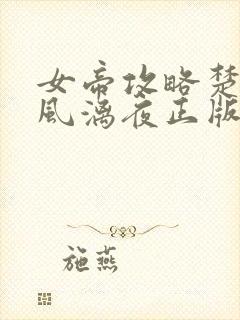 女帝攻略楚
风漓夜正版
施燕